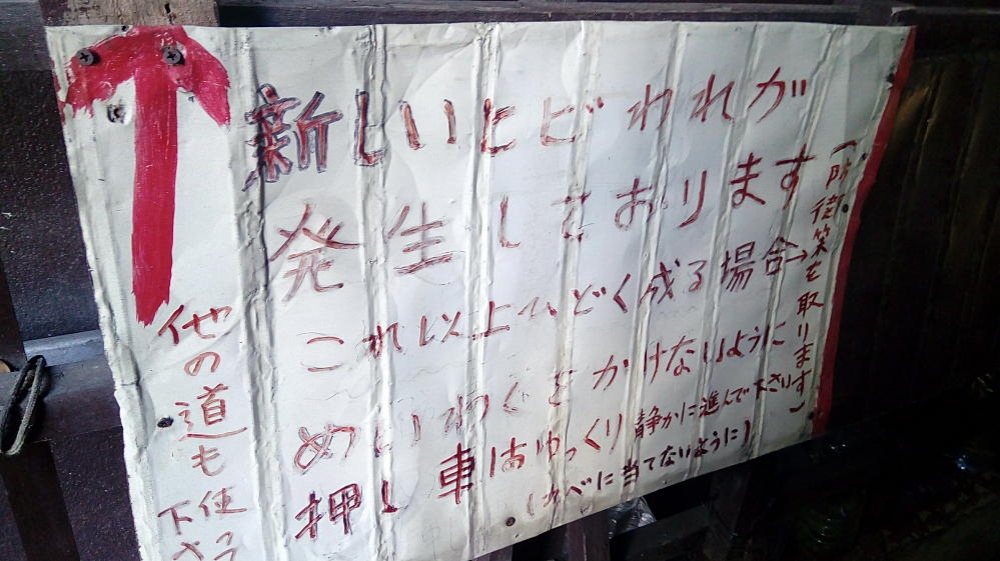 新しいヒビわれが
発生しております
これ以上ひどく成る場合→
(防衛策を取ります)
めいわくをかけないように
押し車はゆっくり静かに進んで下さい
(カベに当てないように)
他の道も使って
下さ